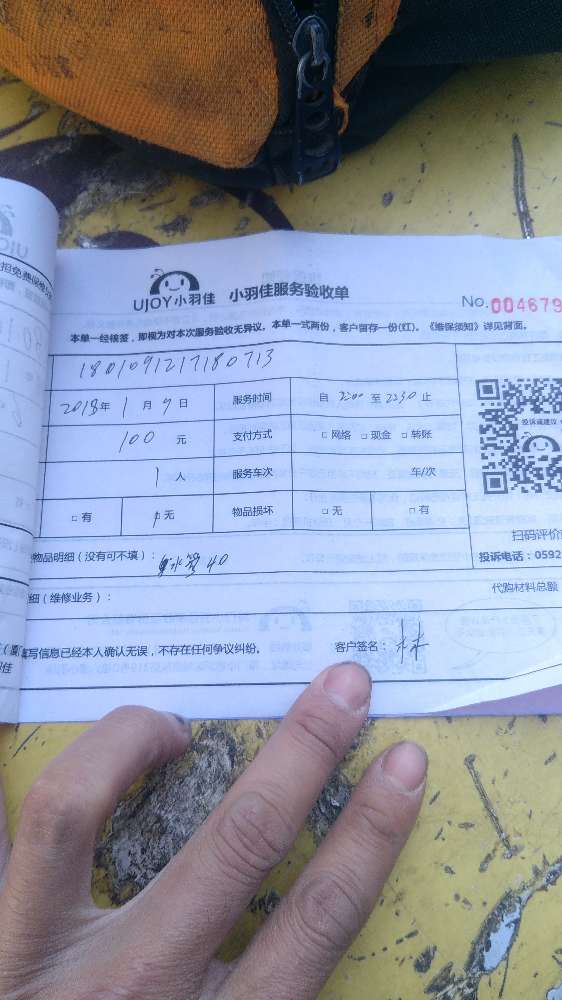 UJOY小羽佳 小羽佳服务验收单
No.004679
本单一经核签，即视为对本次服务验收无异议。本单一式两份，客户留存一份(红)。《维保须知》详见背面。
1801091217180713
2018年 1月9日 服务时间 自 至 2230 止
100 元 支付方式 □网络 □现金 □转账
投诉或建议
1 人 服务车次 车/次
□有 □无 物品损坏 □无 □有
扫码评价
物品明细（没有可不填）： 水管 40
投诉电话：0592
细（维修业务）： 代购材料总额
填写信息已经本人确认无误，不存在任何争议纠纷。 客户签名： 林